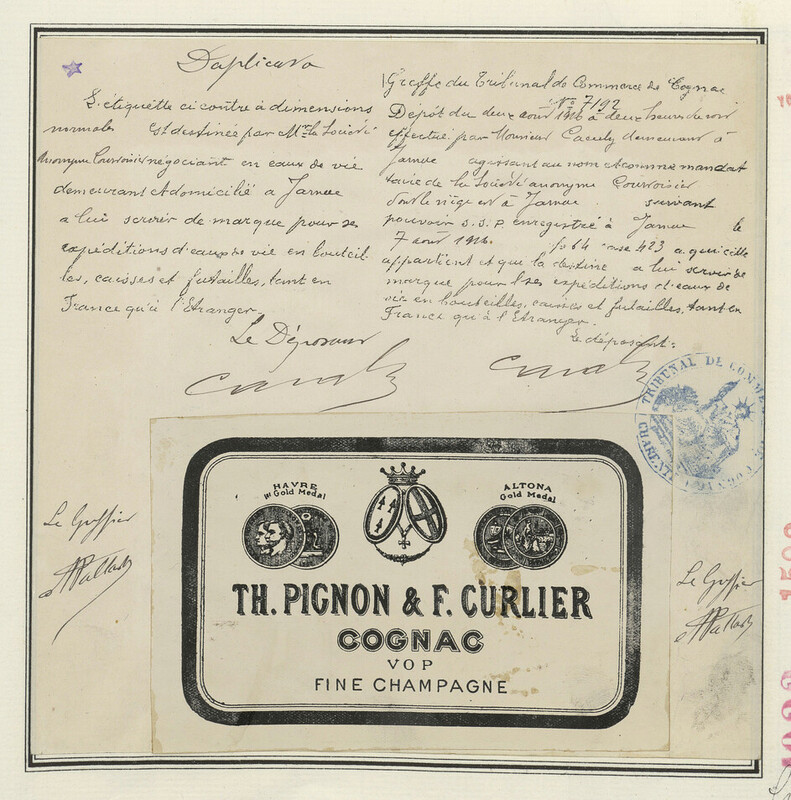 Duplicata
L'étiquette ci contre à dimensions
normales est destinée par Mr. la Société
Anonyme Courvoisier négociant en eaux de vie
demeurant et domicilié à Jarnac
a lui servir de marque pour ses
expéditions d'eaux de vie en bouteil-
les, caisses et futailles, tant en
France qu'à l'Etranger.
Le Déposant
Greffe du Tribunal de Commerce de Cognac
No 7192
Dépôt du deux août 1916 à deux heures du soir
effectué par Monsieur demeurant à
Jarnac agissant au nom et comme mandat
taire de la Société anonyme Courvoisier
dont le siège est à Jarnac suivant
pouvoir s.s.p. enregistré à Jarnac le
7 août 1916. fo 64 case 423 a qui elle
appartient et que la destine a lui servir de
marque pour ses expéditions d'eaux de
vie en bouteilles, caisses et futailles, tant en
France qu'à l'Etranger.
Le déposant:
TRIBUNAL DE COMMER
Le Greffier
Le Greffier
HAVRE
Gold Medal
ALTONA
Gold Medal
TH. PIGNON & F. CURLIER
COGNAC
VOP
FINE CHAMPAGNE